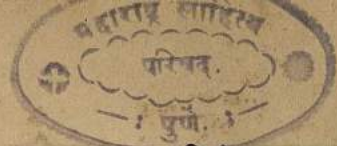 महाराष्ट्र साहित्य
परिषद.
—: पुणें. :—